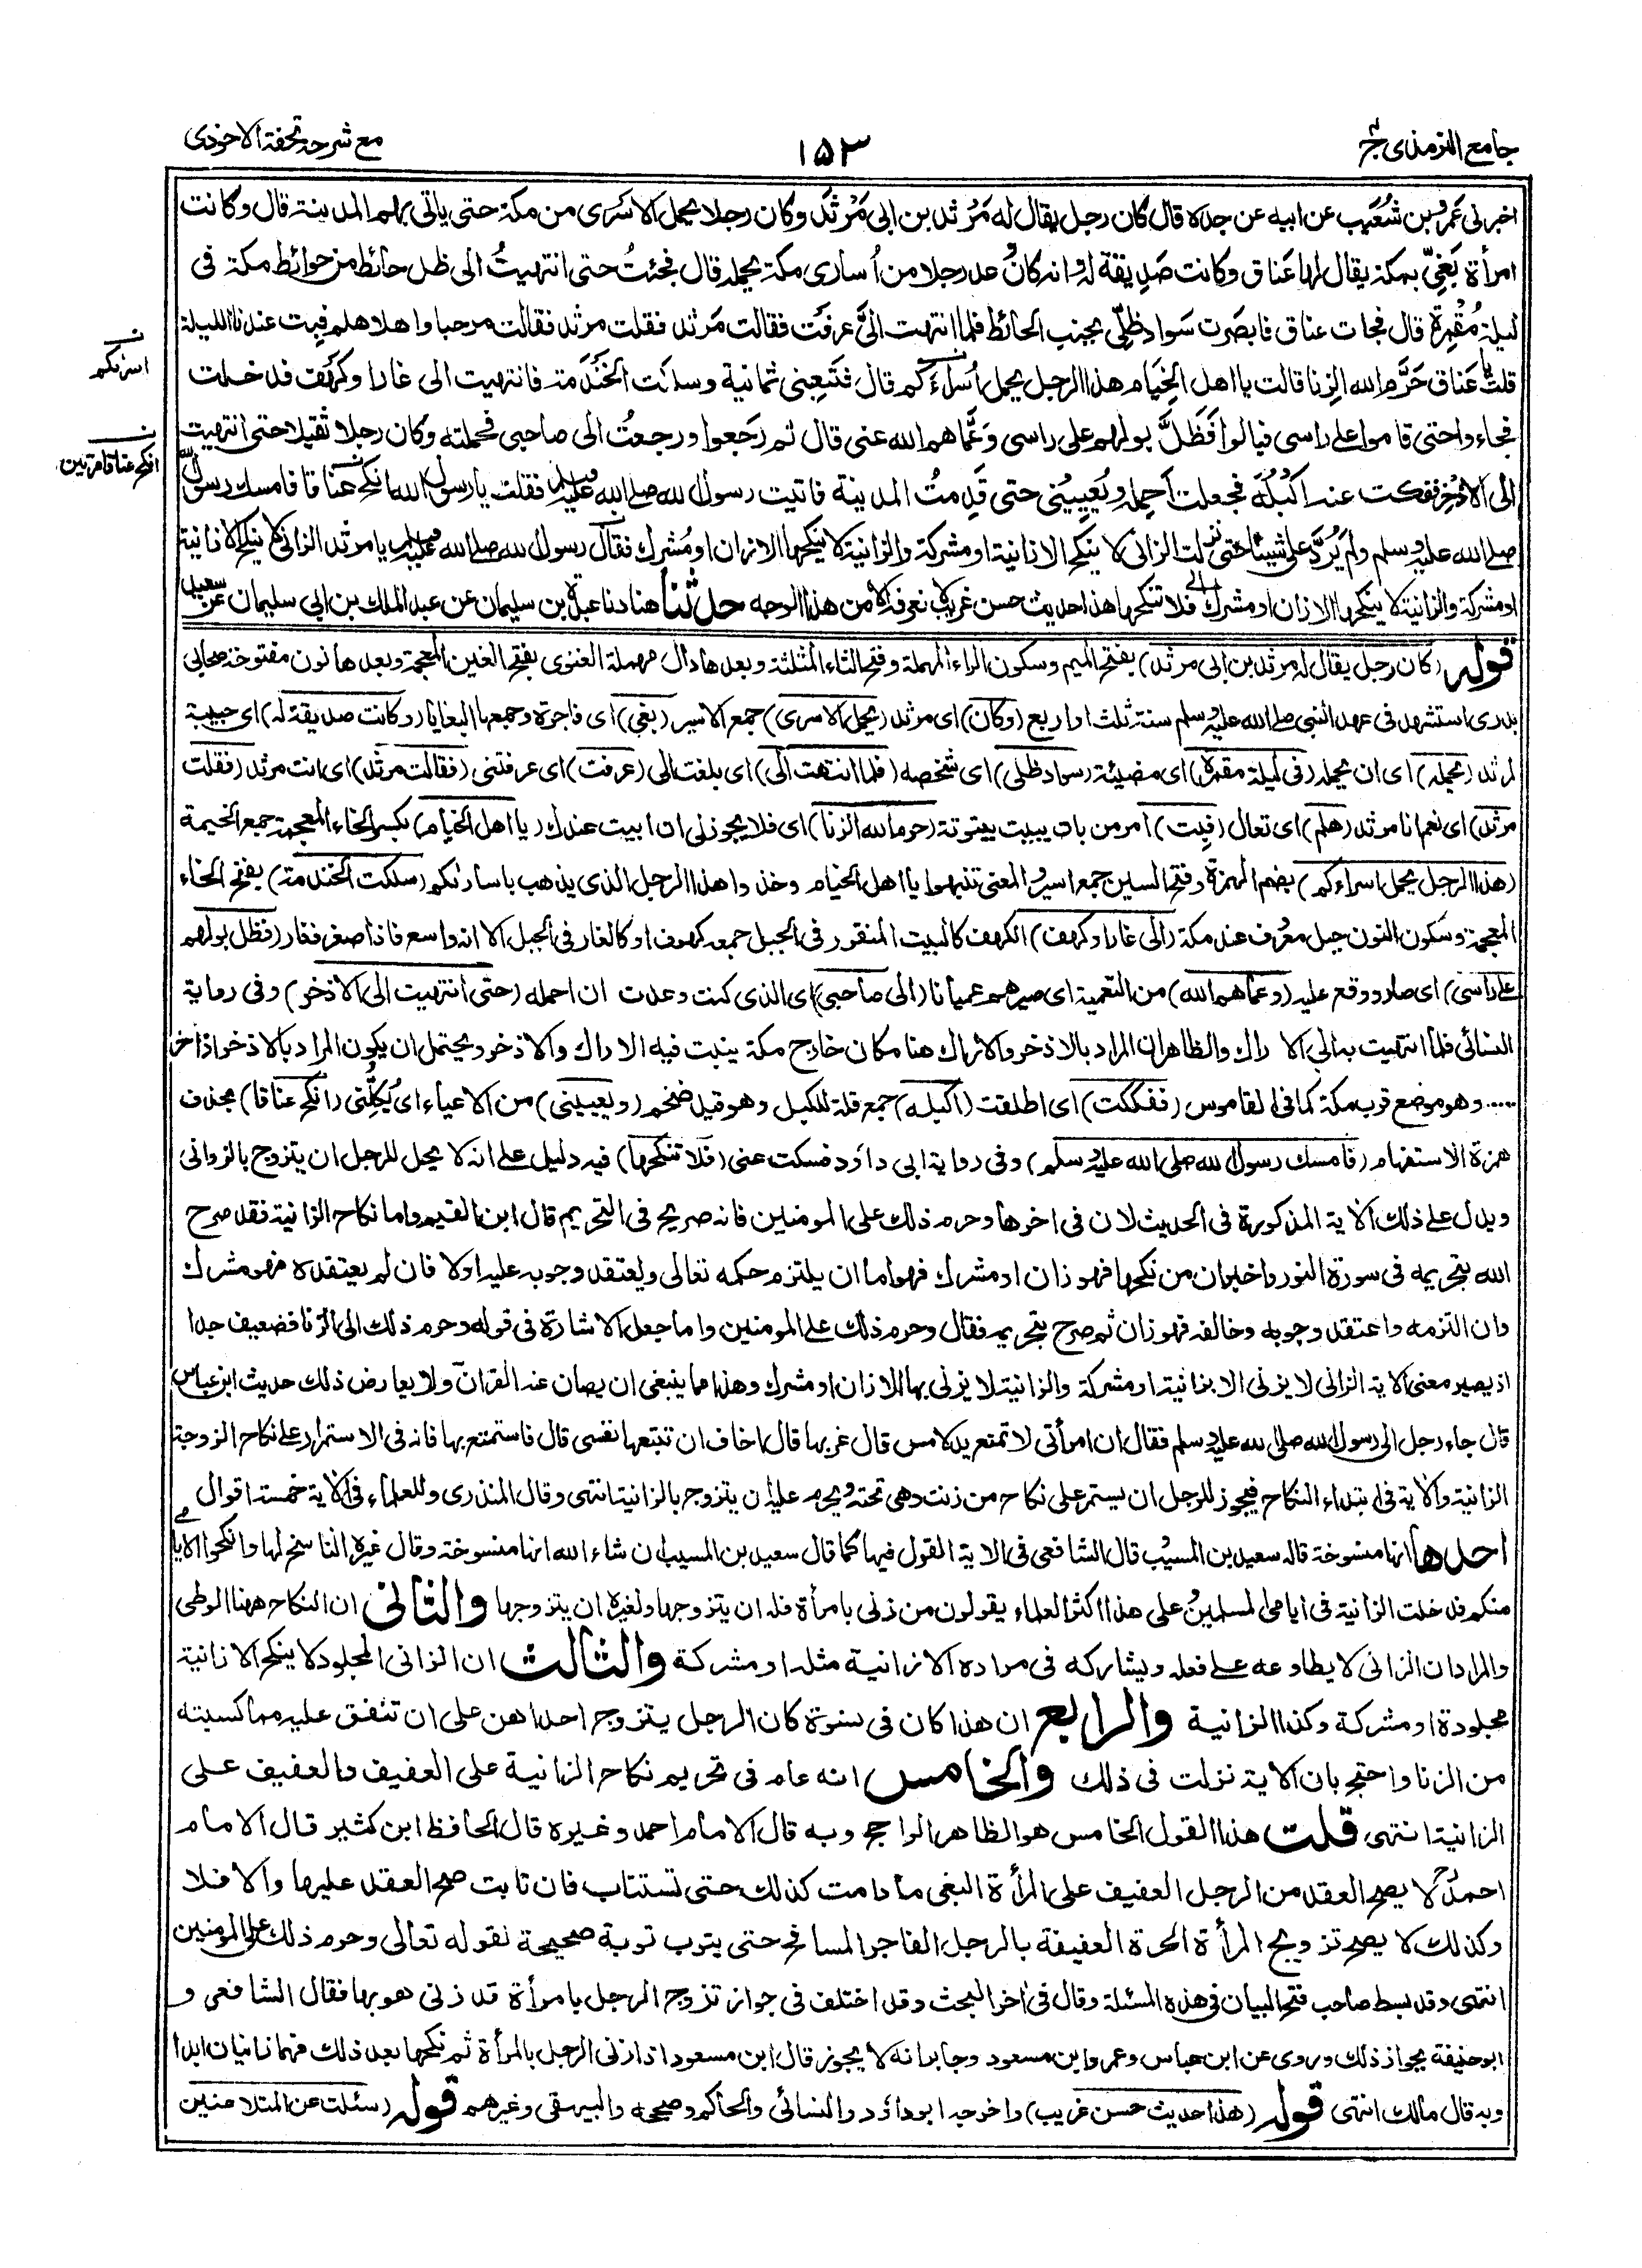 جامع الترمذى ج٤
١٥٣
مع شرحه تحفة الاحوذى
اخبرنى عَمرو بن شُعَيب عن ابيه عن جده قال كان رجل يقال له مَرْثد بن ابى مَرْثَد وكان رجلا يحمل الاسَرى من مكة حتى ياتى بهم المدينة قال وكانت
امرأة بَغِىّ بمكة يقال لها عَناق وكانت صَدِيقة له وانه كان وعد رجلا من اُسارى مكة يحمله قال فجئتُ حتى انتهيتُ الى ظل حائط من حوائط مكة فى
ليلة مُقْمِرة قال فجات عناق فابصَرت سَواد ظِلّى بجنب الحائط فلما انتهت الىَّ عرفَت فقالت مَرْثد فقلت مرثد فقالت مرحبا واهلا هلم فبِت عندنا الليلة
قلتُ يا عَناق حَرَّم الله الزِنا قالت يا اهل الخِيام هذا الرجل يحمل اُسَراءَكم قال فتَبِعنى ثمانية وسلكت الخَندَمة فانتهيت الى غار او كَهَف فدخلت
فجاءوا حتى قاموا على راسى فبالوا فَظَلَّ بولهم على راسى وعَمَّاهم الله عنى قال ثم رَجَعوا ورجعتُ الى صاحبى فحملته وكان رجلا ثقيلا حتى انتهيت
الى الاذْخِر ففككت عنه اَكْبُلَه فجعلت اَحِمله ويُعيِيْنى حتى قَدِمتُ المدينة فاتيت رسول الله صلى الله عليه وسلم فقلت يا رسول الله انكح عناقا فامسك رسول الله
صلى الله عليه وسلم ولم يُرُدَّ علىّ شيئا حتى نزلت الزانى لا ينكح الا زانية او مشركة والزانية لا ينكحها الا زان او مُشرك فقال رسول الله صلى الله عليه وسلم يا مرثد الزانى لا ينكح الا زانية
او مشركة والزانية لا ينكحها الا زان او مشرك فلا تنكحها هذا حديث حسن غريب لا نعرفه الا من هذا الوجه حدثنا هناد نا عبدة بن سليمان عن عبد الملك بن ابى سليمان عن سعيد
اسرائكم
انكح عناقا مرتين
قوله (كان رجل يقال له مرثد بن ابى مرثد) بفتح الميم وسكون الراء المهملة وفتح الثاء المثلثة وبعدها دال مهملة الغنوى بفتح الغين المعجمة وبعدها نون مفتوحة صحابى
بدرى استشهد فى عهد النبى صلى الله عليه وسلم سنة ثلث او اربع (وكان) اى مرثد (يحمل الاسرى) جمع الاسير (بغى) اى فاجرة وجمعها البغايا (وكانت صديقة له) اى حبيبة
لمرثد (يحمله) اى ان يحمله (فى ليلة مقمرة) اى مضيئة (سواد ظلى) اى شخصه (فلما انتهت الى) اى بلغت الى (عرفت) اى عرفتنى (فقالت مرثد) اى انت مرثد (فقلت
مرثد) اى نعم انا مرثد (هلم) اى تعال (فبت) امر من بات يبيت بيتوتة (حرم الله الزنا) اى فلا يجوز لى ان ابيت عندك (يا اهل الخيام) بكسر الخاء المعجمة جمع الخيمة
(هذا الرجل يحمل اسراءكم) بضم الهمزة وفتح السين جمع اسير والمعنى تنبهوا يا اهل الخيام وخذوا هذا الرجل الذى يذهب باسارائكم (سلكت الخندمة) بفتح الخاء
المعجمة وسكون النون جبل معرف عند مكة (الى غار او كهف) الكهف كالبيت المنقور فى الجبل جمعه كهوف او كالغار فى الجبل الا انه واسع فاذا صغر فغار (فظل بولهم
على راسى) اى صار ووقع عليه (وعماهم الله) من التعمية اى صيرهم عميانا (الى صاحبى) اى الذى كنت وعدت ان احمله (حتى انتهيت الى الاذخر) وفى رواية
النسائى فلما انتهيت به الى الاراك والظاهر ان المراد بالاذخر والاراك هنا مكان خارج مكة ينبت فيه الاراك والاذخر ويحتمل ان يكون المراد بالاذخر اذاخر
..... وهو موضع قرب مكة كما فى القاموس (ففككت) اى اطلقت (اكبله) جمع قلة للكبل وهو قيد ضخم (ويعيينى) من الاعياء اى يُكِلُّنى (انكح عناقا) بحذف
همزة الاستفهام (فامسك رسول الله صلى الله عليه وسلم) وفى رواية ابى داؤد فسكت عنى (فلا تنكحها) فيه دليل على انه لا يحل للرجل ان يتزوج بالزوانى
ويدل على ذلك الاية المذكورة فى الحديث لان فى اخرها وحرم ذلك على المومنين فانه صريح فى التحريم قال ابن القيم واما نكاح الزانية فقد صرح
الله بتحريمه فى سورة النور واخبر ان من نكحها فهو زان او مشرك فهو اما ان يلتزم حكمه تعالى ويعتقد وجوبه عليه اولا فان لم يعتقده فهو مشرك
وان التزمه واعتقد وجوبه وخالفه فهو زان ثم صرح بتحريمه فقال وحرم ذلك على المومنين واما جعل الاشارة فى قوله وحرم ذلك الى الزنا فضعيف جدا
اذ يصير معنى الاية الزانى لا يزنى الا بزانية او مشركة والزانية لا يزنى بها الا زان او مشرك وهذا مما ينبغى ان يصان عنه القرآن ولا يعارض ذلك حديث ابن عباس
قال جاء رجل الى رسول الله صلى الله عليه وسلم فقال ان امرأتى لا تمنع يد لامس قال غربها قال اخاف ان تتبعها نفسى قال فاستمتع بها فانه فى الاستمرار على نكاح الزوجة
الزانية والاية فى ابتداء النكاح فيجوز للرجل ان يستمر على نكاح من زنت وهى تحته ويحرم عليه ان يتزوج بالزانية انتهى وقال المنذرى وللعلماء فى الاية خمسة اقوال
احدها انها منسوخة قاله سعيد بن المسيب قال الشافعى فى الاية القول فيها كما قال سعيد بن المسيب ان شاء الله انها منسوخة وقال غيره الناسخ لها وانكحوا الايامى
منكم فدخلت الزانية فى ايامى المسلمين وعلى هذا اكثر العلماء يقولون من زنى بامرأة فله ان يتزوجها ولغيره ان يتزوجها والثانى ان النكاح ههنا الوطى
والمراد ان الزانى لا يطاوعه على فعله ويشاركه فى مراده الا زانية مثله او مشركة والثالث ان الزانى المجلود لا ينكح الا زانية
مجلودة او مشركة وكذا الزانية والرابع ان هذا كان فى نسوة كان الرجل يتزوج احداهن على ان تنفق عليه مما كسبته
من الزنا واحتج بان الاية نزلت فى ذلك والخامس انه عام فى تحريم نكاح الزانية على العفيف والعفيف على
الزانية انتهى قلت هذا القول الخامس هو الظاهر الراجح وبه قال الامام احمد وغيره قال الحافظ ابن كثير قال الامام
احمدرح لا يصح العقد من الرجل العفيف على المرأة البغى ما دامت كذلك حتى تستتاب فان تابت صح العقد عليها والا فلا
وكذلك لا يصح تزويج المرأة الحرة العفيفة بالرجل الفاجر المسافح حتى يتوب توبة صحيحة لقوله تعالى وحرم ذلك على المومنين
انتهى وقد بسط صاحب فتح البيان فى هذه المسئلة وقال فى اخر البحث وقد اختلف فى جواز تزوج الرجل بامرأة قد زنى هو بها فقال الشافعى و
ابو حنيفة بجواز ذلك وروى عن ابن عباس وعمر وابن مسعود وجابر انه لا يجوز قال ابن مسعود اذا زنى الرجل بالمرأة ثم نكحها بعد ذلك فهما زانيان ابدا
وبه قال مالك انتهى قوله (هذا حديث حسن غريب) واخرجه ابو داؤد والنسائى والحاكم وصححه والبيهقى وغيرهم قوله (سئلت عن المتلاعنين